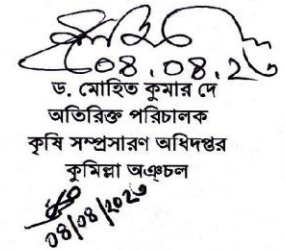 ০৪.০৪.২৩
ড. মোহিত কুমার দে
অতিরিক্ত পরিচালক
কৃষি সম্প্রসারণ অধিদপ্তর
কুমিল্লা অঞ্চল
০৪/০৪/২০২৩